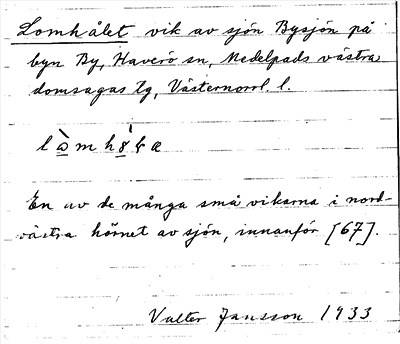 Lomhålet vik av sjön Bysjön på
byn By, Haverö sn, Medelpads västra
domsagas tg, Västernorrl. l.
En av de många små vikarna i nord-
västra hörnet av sjön, innanför [67].
Valter Jansson 1933